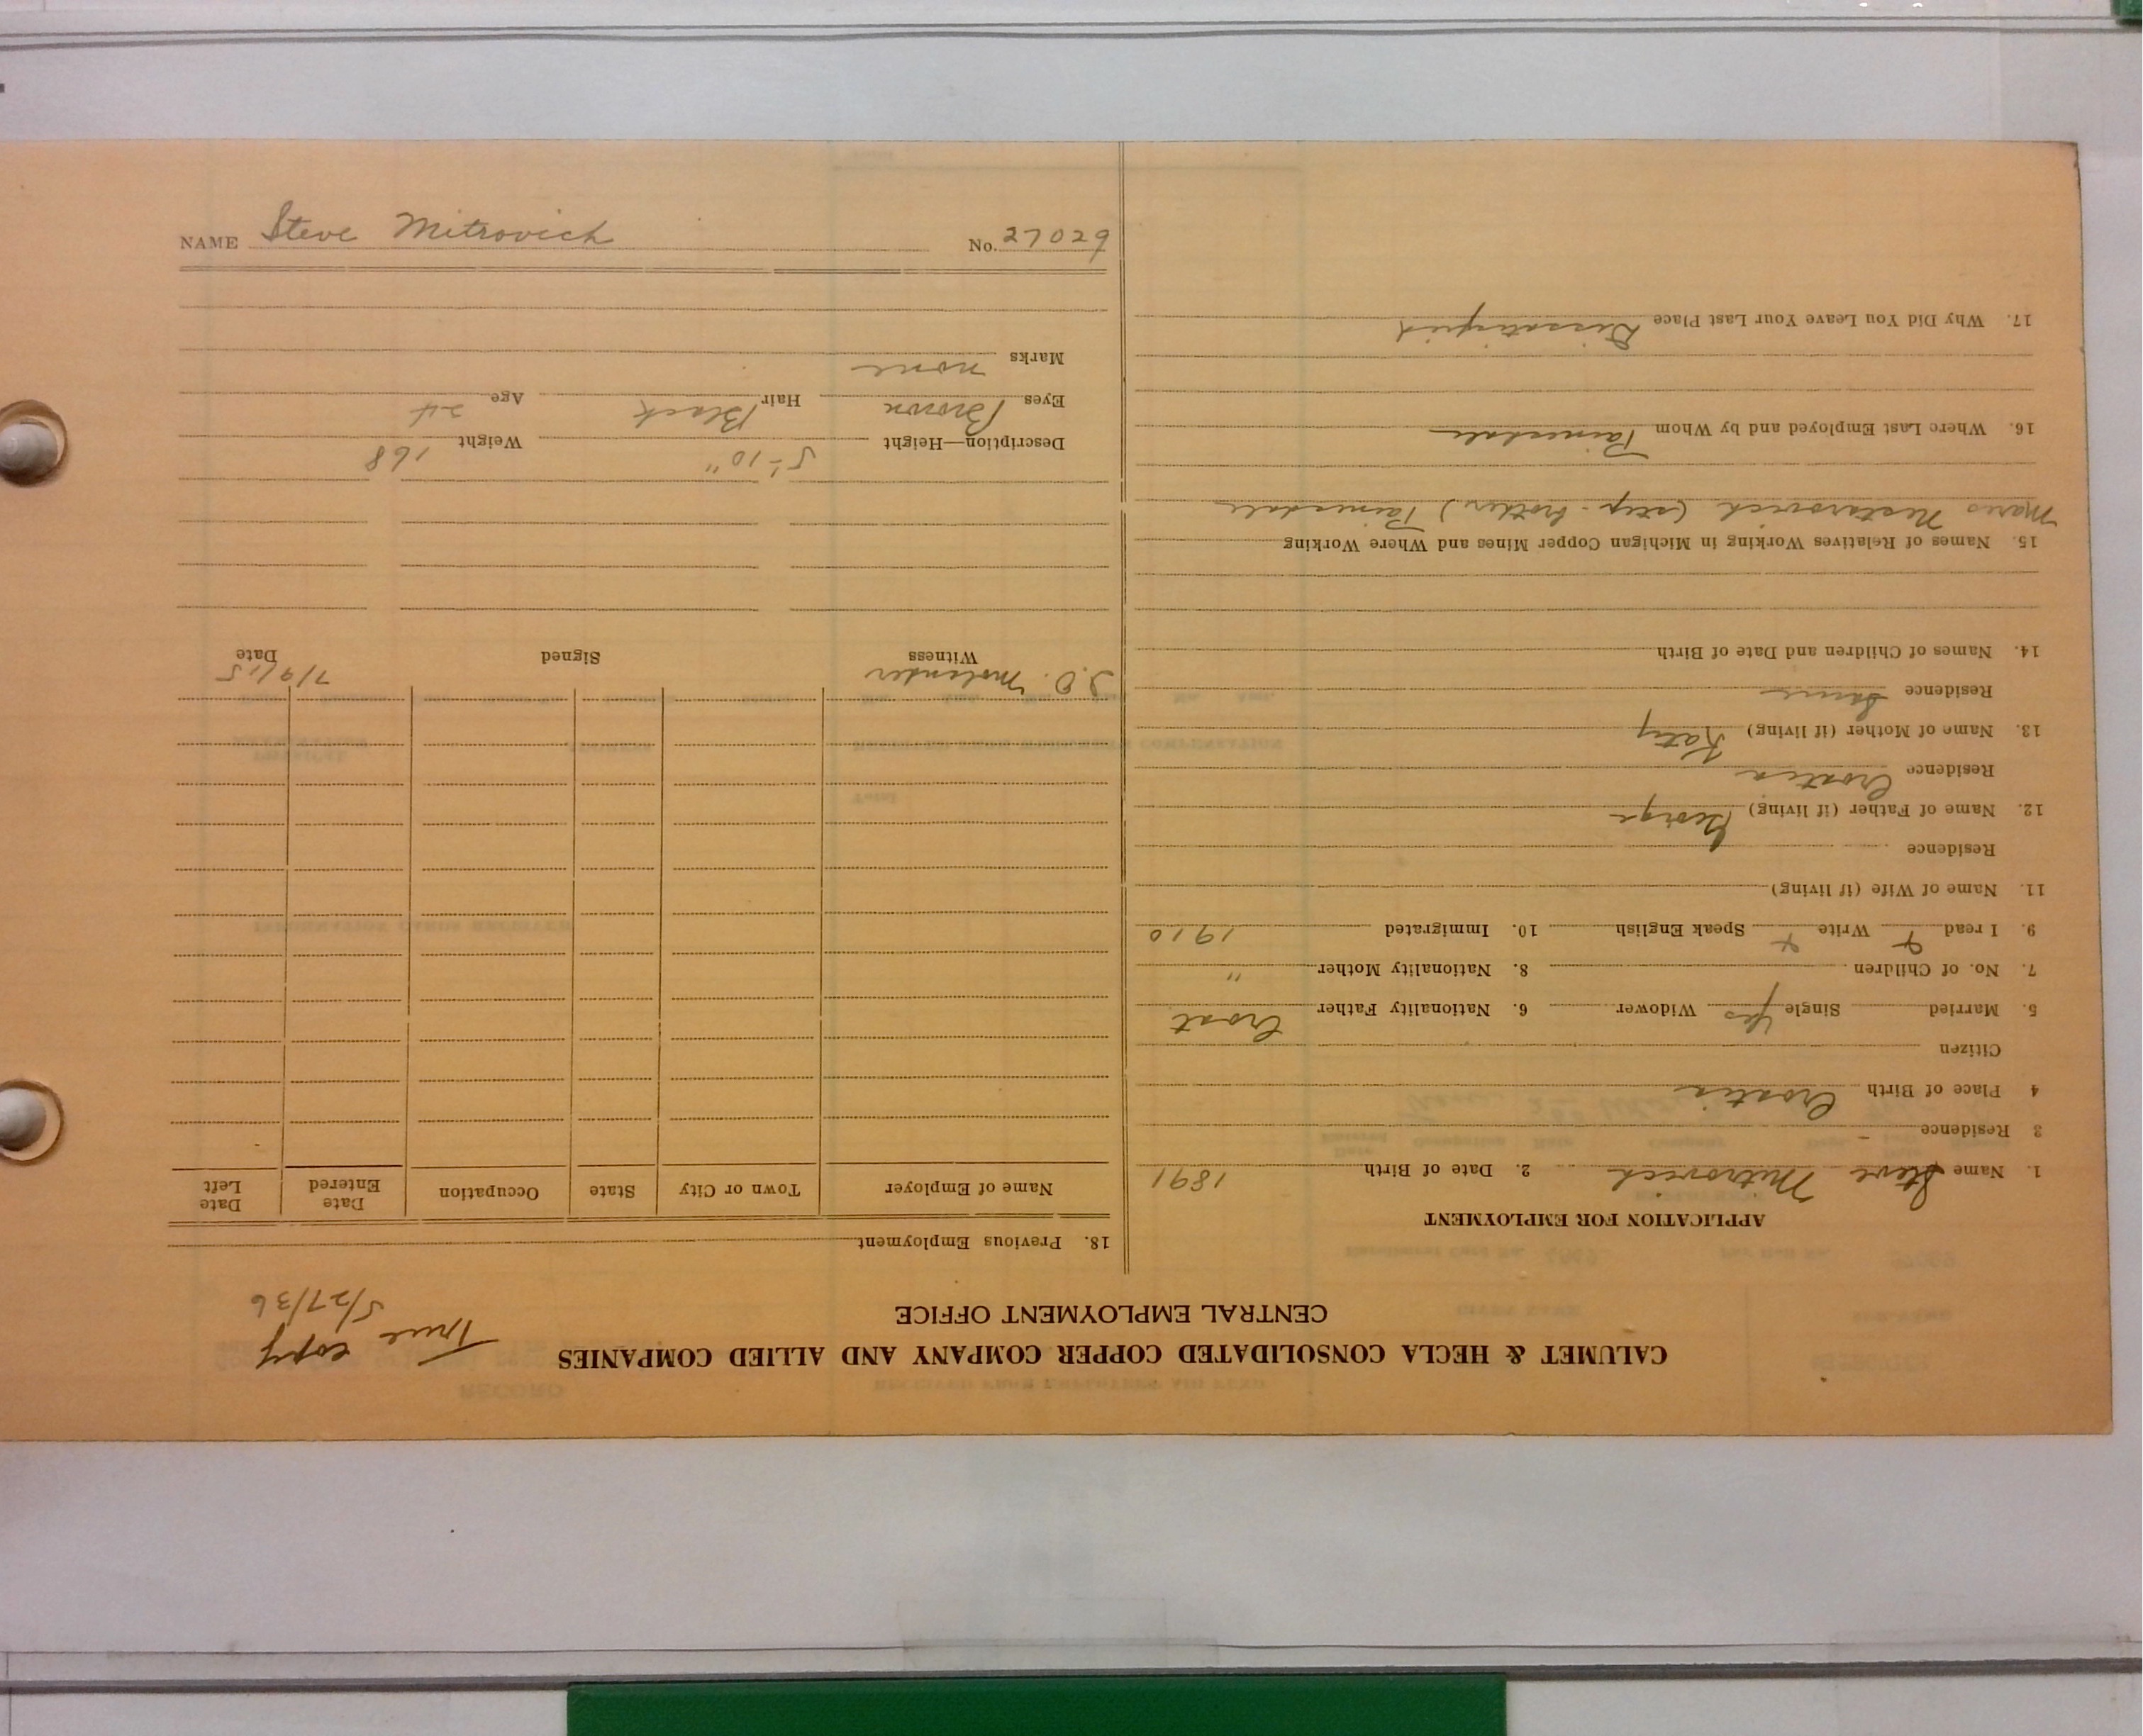 CALUMET & HECLA CONSOLIDATED COPPER COMPANY AND ALLIED COMPANIES
CENTRAL EMPLOYMENT OFFICE
True copy
5/27/36
APPLICATION FOR EMPLOYMENT
1. Name Steve Mitrovich 2. Date of Birth 1891
3 Residence
4 Place of Birth Croatia
Citizen
5. Married Single Yes Widower 6. Nationality Father Croat
7. No. of Children 8. Nationality Mother "
9. I read & Write & Speak English 10. Immigrated 1910
11. Name of Wife (if living)
Residence
12. Name of Father (if living) George
Residence Croatia
13. Name of Mother (if living) Katy
Residence Same
14. Names of Children and Date of Birth
15. Names of Relatives Working in Michigan Copper Mines and Where Working
(step-brother) Painesdale
16. Where Last Employed and by Whom Painesdale
17. Why Did You Leave Your Last Place Dissatisfied
18. Previous Employment
Name of Employer Town or City State Occupation Date Entered Date Left
S.O. Molander 7/9/15
Witness Signed Date
Description—Height 5'-10" Weight 168
Eyes Brown Hair Black Age 24
Marks none
NAME Steve Mitrovich No. 27029